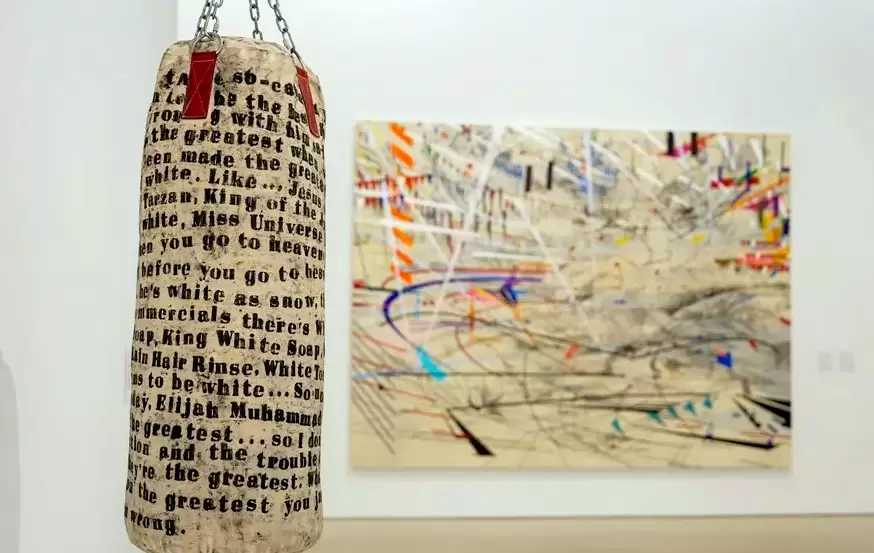 so-ca
be the be
with hi
the greatest whe
een made the greate
white. Like... Jesus
Tarzan, King of the
white, Miss Universe
en you go to heaven
before you go to hea
he's white as snow, t
mmercials there's W
oap, King White Soap,
ain Hair Rinse. White To
ns to be white... So
day, Elijah Muhammad
e greatest... so I de
tion and the trouble
ey're the greatest. Wh
the greatest you ju
wrong.